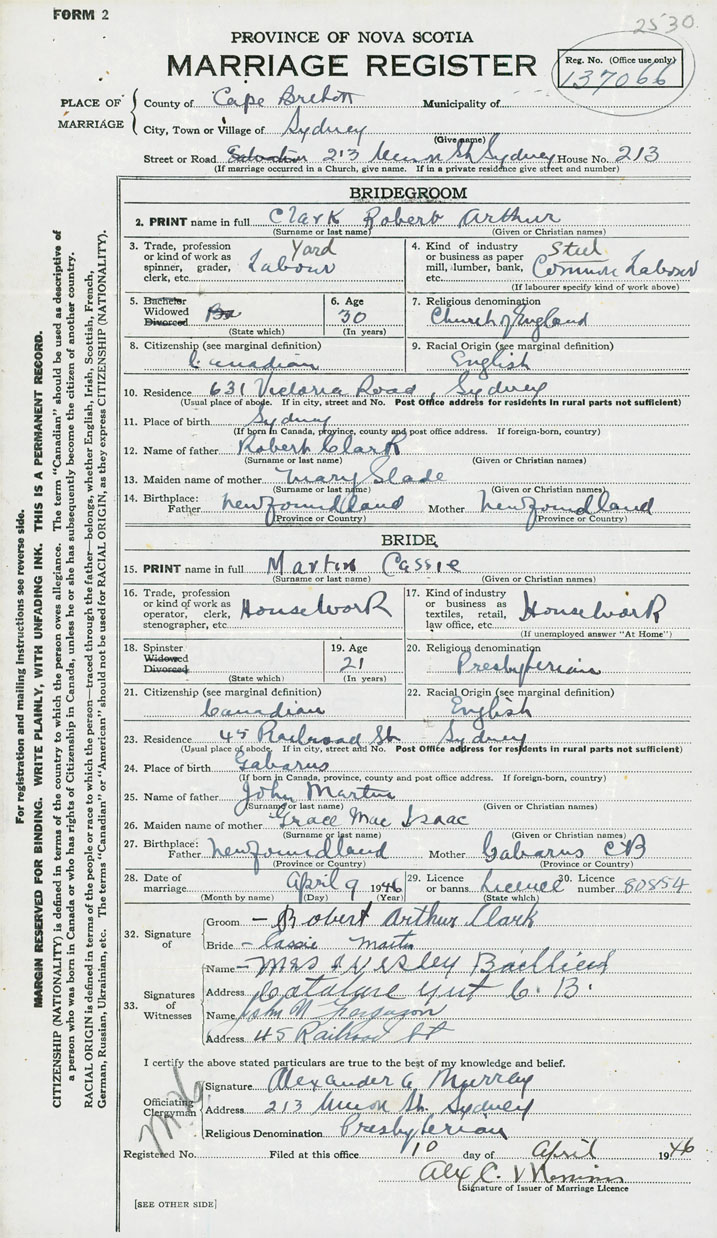 FORM 2
2530
PROVINCE OF NOVA SCOTIA
MARRIAGE REGISTER
Reg. No. (Office use only)
137066
PLACE OF MARRIAGE
County of Cape Breton Municipality of
City, Town or Village of Sydney
(Give name)
Street or Road 213 Union St Sydney House No. 213
(If marriage occurred in a Church, give name. If in a private residence give street and number)
BRIDEGROOM
2. PRINT name in full Clark Robert Arthur
(Surname or last name) (Given or Christian names)
3. Trade, profession or kind of work as spinner, grader, clerk, etc. Yard Labour
4. Kind of industry or business as paper mill, lumber, bank, etc. Steel Common Labour
(If labourer specify kind of work above)
5. Bachelor Widowed Divorced
(State which)
6. Age 30
(In years)
7. Religious denomination
Church of England
8. Citizenship (see marginal definition)
Canadian
9. Racial Origin (see marginal definition)
English
10. Residence 631 Victoria Road, Sydney
(Usual place of abode. If in city, street and No. Post Office address for residents in rural parts not sufficient)
11. Place of birth Sydney
(If born in Canada, province, county and post office address. If foreign-born, country)
12. Name of father Robert Clark
(Surname or last name) (Given or Christian names)
13. Maiden name of mother Mary Slade
(Surname or last name) (Given or Christian names)
14. Birthplace: Father Newfoundland Mother Newfoundland
(Province or Country) (Province or Country)
BRIDE
15. PRINT name in full Martin Cassie
(Surname or last name) (Given or Christian names)
16. Trade, profession or kind of work as operator, clerk, stenographer, etc. HouseWork
17. Kind of industry or business as textiles, retail, law office, etc. HouseWork
(If unemployed answer "At Home")
18. Spinster Widowed Divorced
(State which)
19. Age 21
(In years)
20. Religious denomination
Presbyterian
21. Citizenship (see marginal definition)
Canadian
22. Racial Origin (see marginal definition)
English
23. Residence 45 Railroad St. Sydney
(Usual place of abode. If in city, street and No. Post Office address for residents in rural parts not sufficient)
24. Place of birth Gabarus
(If born in Canada, province, county and post office address. If foreign-born, country)
25. Name of father John Martin
(Surname or last name) (Given or Christian names)
26. Maiden name of mother Grace Mac Isaac
(Surname or last name) (Given or Christian names)
27. Birthplace: Father Newfoundland Mother Gabarus CB
(Province or Country) (Province or Country)
28. Date of marriage April 9 1946
(Month by name) (Day) (Year)
29. Licence or banns Licence
(State which)
30. Licence number 80854
32. Signature of
Groom – Robert Arthur Clark
Bride – Cassie Martin
33. Signatures of Witnesses
Name – Mrs Wesley
Address Catalone C. B.
Name John Ferguson
Address 45 Railroad St
I certify the above stated particulars are true to the best of my knowledge and belief.
Officiating Clergyman
Signature Alexander Murray
Address 213 Union St. Sydney
Religious Denomination Presbyterian
Registered No. Filed at this office 10 day of April 1946
Alex C.
(Signature of Issuer of Marriage Licence
[SEE OTHER SIDE]
For registration and mailing instructions see reverse side.
MARGIN RESERVED FOR BINDING. WRITE PLAINLY, WITH UNFADING INK. THIS IS A PERMANENT RECORD.
CITIZENSHIP (NATIONALITY) is defined in terms of the country to which the person owes allegiance. The term "Canadian" should be used as descriptive of
a person who was born in Canada or who has rights of Citizenship in Canada, unless he or she has subsequently become the citizen of another country.
RACIAL ORIGIN is defined in terms of the people or race to which the person—traced through the father—belongs, whether English, Irish, Scottish, French,
German, Russian, Ukrainian, etc. The terms "Canadian" or "American" should not be used for RACIAL ORIGIN, as they express CITIZENSHIP (NATIONALITY).